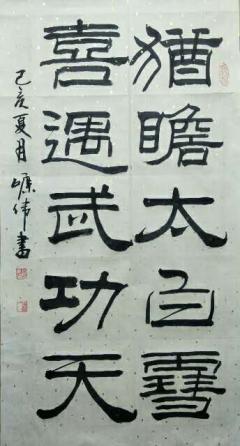 猶瞻太白雪
喜遇武功天
己亥夏月
伟書